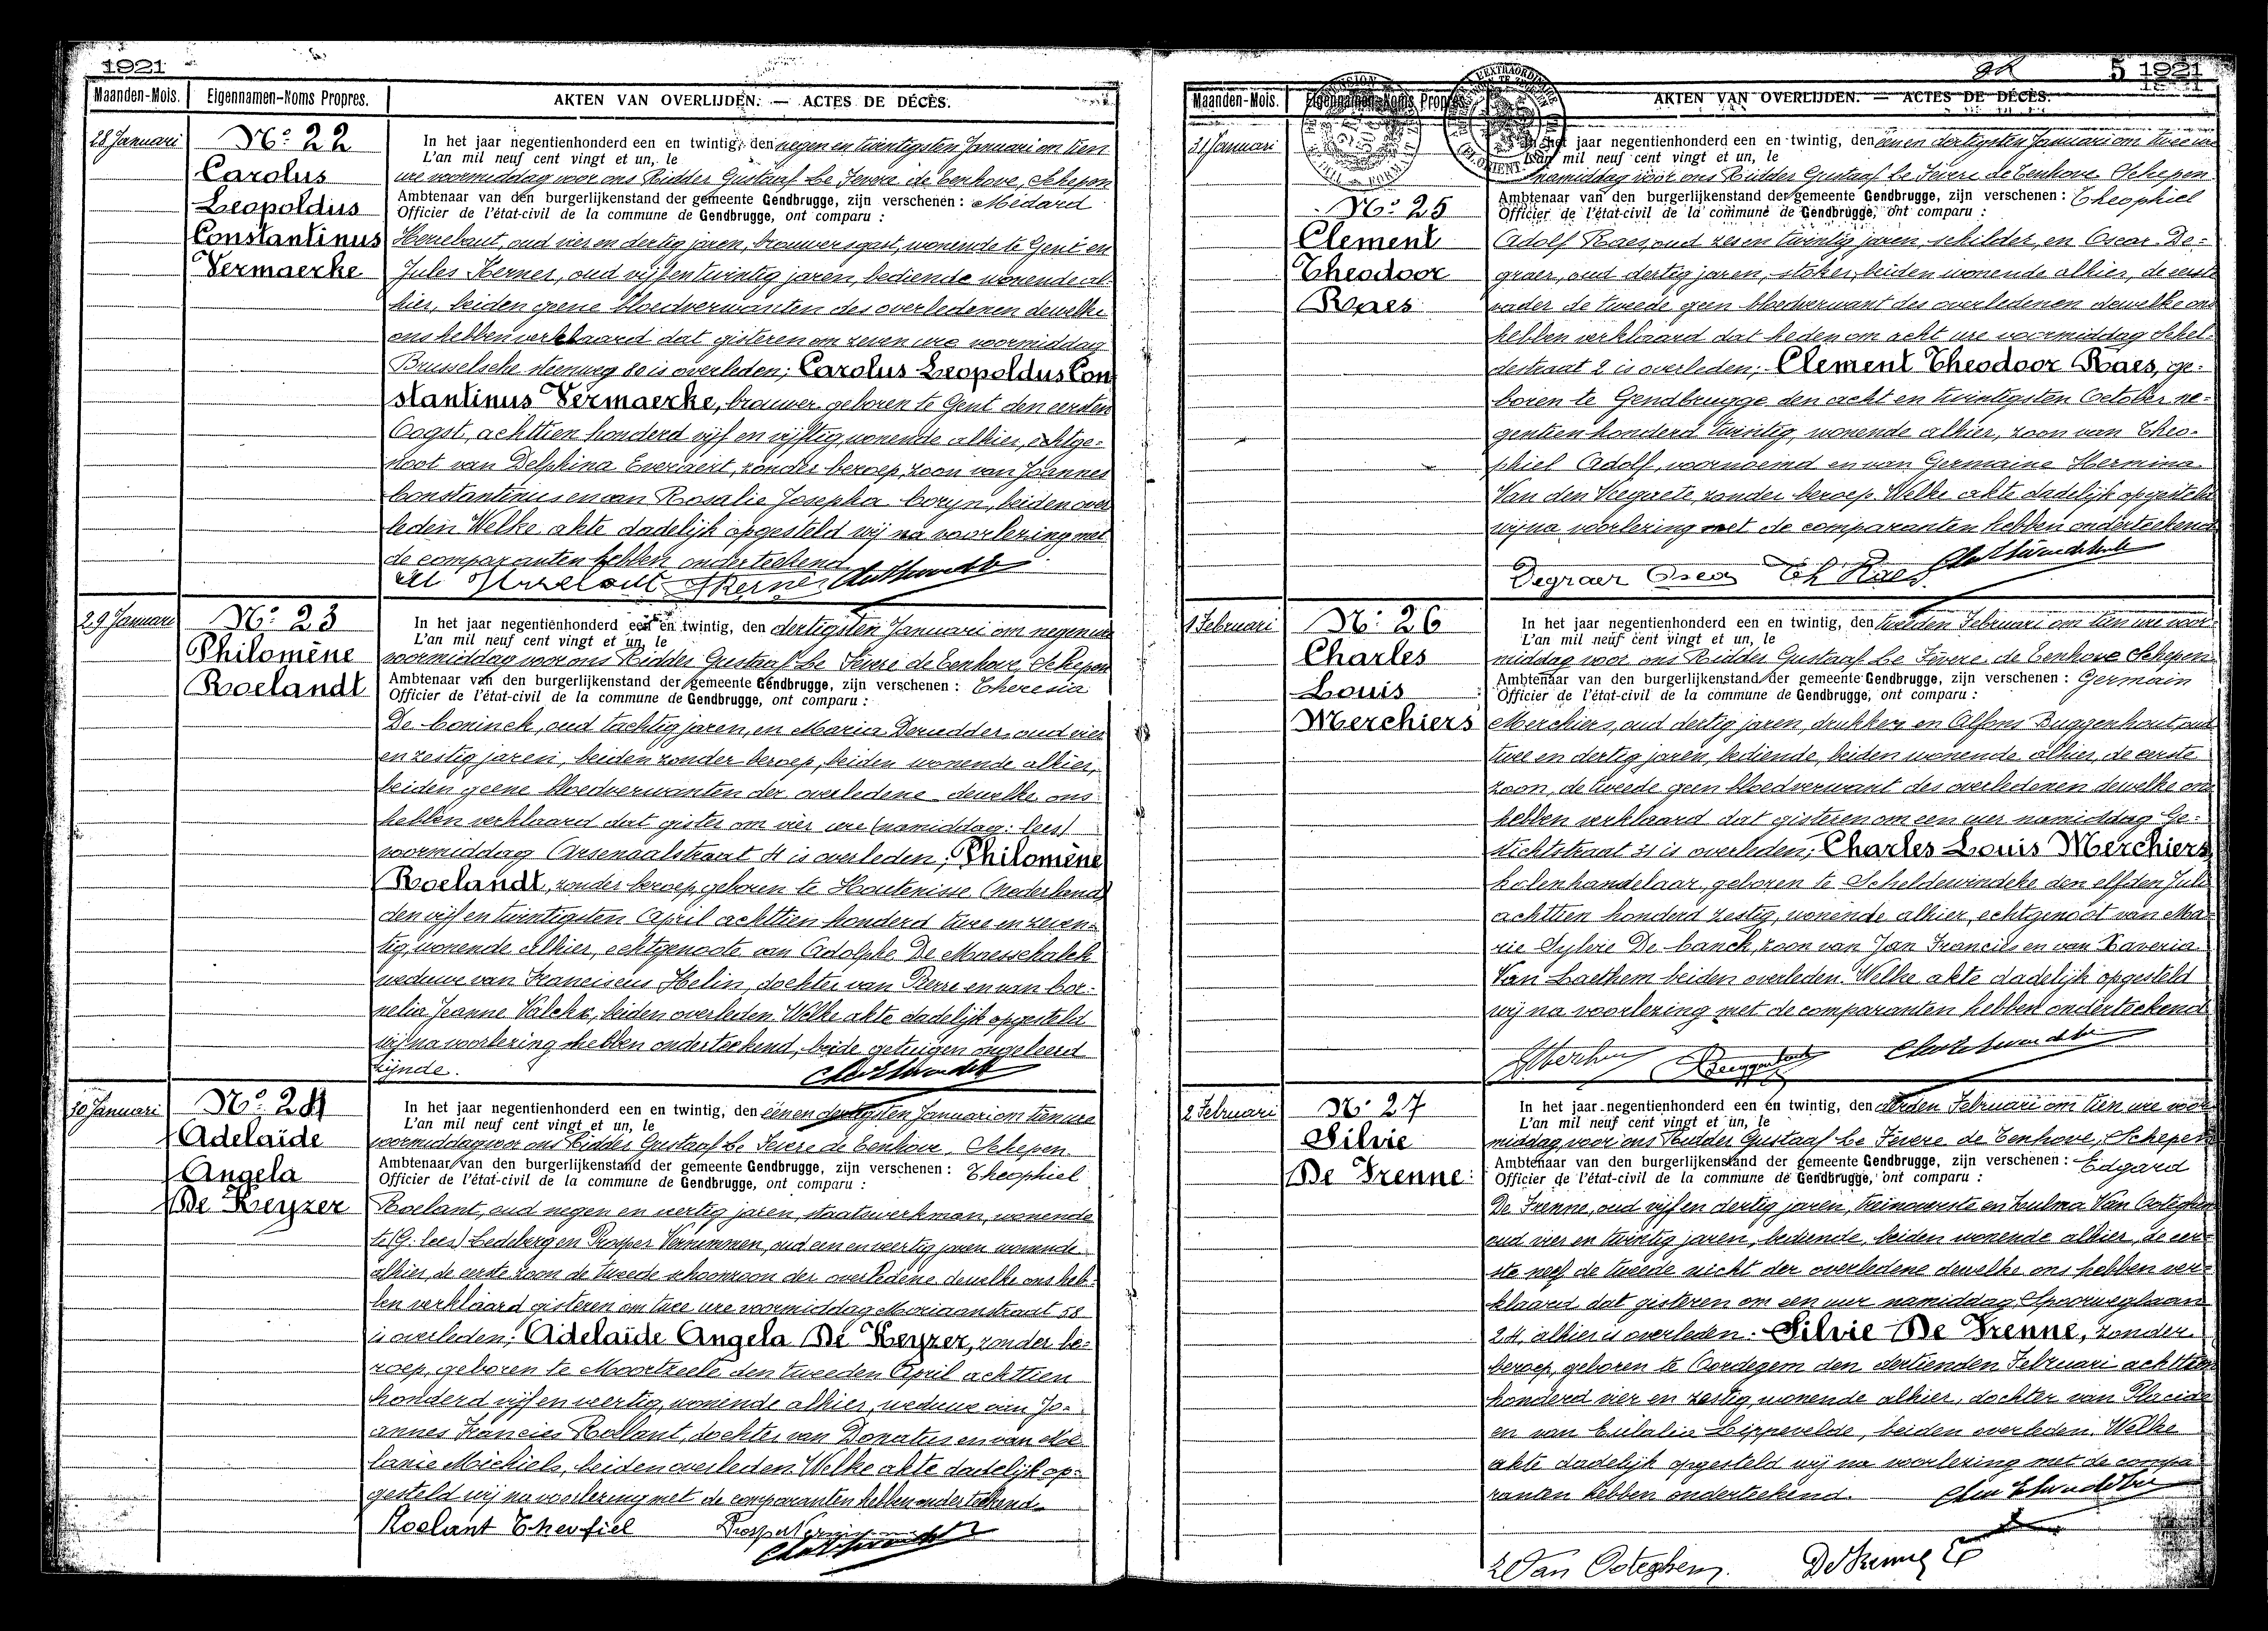 1921
Maanden-Mois. Eigennamen-Noms Propres. AKTEN VAN OVERLIJDEN. — ACTES DE DÉCÈS.
28 Januari
No. 22
Carolus
Leopoldus
Constantinus
Vermaerke
In het jaar negentienhonderd een en twintig, den negen en twintigsten Januari om tien
L'an mil neuf cent vingt et un, le
ure voormiddag voor ons Ridder Gustaaf Le Fevere de Tenhove, Schepen
Ambtenaar van den burgerlijkenstand der gemeente Gendbrugge, zijn verschenen : Médard
Officier de l'état-civil de la commune de Gendbrugge, ont comparu :
oud vier en dertig jaren, brouwersgast, wonende te Gent en
Jules Kerner, oud vijf en twintig jaren, bediende wonende al-
hier, beiden geene bloedverwanten des overledenen dewelke
ons hebben verklaard dat gisteren om zeven ure voormiddag
Brusselsche steenweg 80 is overleden; Carolus Leopoldus Con
stantinus Vermaerke, brouwer geboren te Gent den eersten
Oogst, achttien honderd vijf en vijftig, wonende alhier, echtge-
noot van Delphina Everaert, zonder beroep, zoon van Joannes
Constantinus en van Rosalie Josepha Coryn, beiden over
leden Welke akte dadelijk opgesteld wij na voorlezing met
de comparanten hebben onderteekend
29 Januari
No. 23
Philomène
Roelandt
In het jaar negentienhonderd een en twintig, den dertigsten Januari om negen ure
L'an mil neuf cent vingt et un, le
voormiddag voor ons Ridder Gustaaf Le Fevere de Tenhove, Schepen
Ambtenaar van den burgerlijkenstand der gemeente Gendbrugge, zijn verschenen : Theresia
Officier de l'état-civil de la commune de Gendbrugge, ont comparu :
De Coninck, oud tachtig jaren, en Maria Deruedder, oud vier
en zestig jaren, beiden zonder beroep, beiden wonende alhier,
beiden geene bloedverwanten der overledene dewelke ons
hebben verklaard dat gister om vier ure (namiddag: lees)
voormiddag Arsenaalstraat 4 is overleden; Philomène
Roelandt, zonder beroep, geboren te Hontenisse (Nederland)
den vijf en twintigsten April achttien honderd twee en zeven-
tig, wonende alhier, echtgenoote van Adolphe De Maesschalck
weduwe van Franciscus Helin, dochter van Pierre en van Cor-
nelia Jeanne Valckx, beiden overleden. Welke akte dadelijk opgesteld
wij na voorlezing hebben onderteekend, beide getuigen ongeleerd
zijnde.
30 Januari
No. 24
Adelaïde
Angela
De Keyzer
In het jaar negentienhonderd een en twintig, den éénen dertigsten Januari om tien ure
L'an mil neuf cent vingt et un, le
voormiddag voor ons Ridder Gustaaf Le Fevere de Tenhove, Schepen
Ambtenaar van den burgerlijkenstand der gemeente Gendbrugge, zijn verschenen : Theophiel
Officier de l'état-civil de la commune de Gendbrugge, ont comparu :
Roelant, oud negen en veertig jaren, staatswerkman, wonende
te (G. lees) Ledeberg en Prosper Vernimmen, oud een en veertig jaren wonende
alhier, de eerste zoon de tweede schoonzoon der overledene dewelke ons heb-
ben verklaard gisteren om twee ure voormiddag Mariaanstraat 58
is overleden; Adelaïde Angela De Keyzer, zonder be-
roep, geboren te Moortzeele den tweeden April achttien
honderd vijf en veertig, wonende alhier, weduwe van Jo-
annes Francies Roelant, dochter van Donatus en van Me-
lanie Michiels, beiden overleden. Welke akte dadelijk op-
gesteld wij na voorlezing met de comparanten hebben onderteekend.
Roelant Theofiel
5 1921
Maanden-Mois. Eigennamen-Noms Propres. AKTEN VAN OVERLIJDEN. — ACTES DE DÉCÈS.
31 Januari
No. 25
Clement
Theodoor
Raes
In het jaar negentienhonderd een en twintig, den éénen dertigsten Januari om twee ure
L'an mil neuf cent vingt et un, le
namiddag voor ons Ridder Gustaaf Le Fevere de Tenhove Schepen
Ambtenaar van den burgerlijkenstand der gemeente Gendbrugge, zijn verschenen : Theophiel
Officier de l'état-civil de la commune de Gendbrugge, ont comparu :
Adolf Raes, oud zes en twintig jaren, schilder, en Oscar De-
graer, oud dertig jaren, stoker, beiden wonende alhier, de eerste
vader de tweede geen bloedverwant des overledenen dewelke ons
hebben verklaard dat heden om acht ure voormiddag Schel-
destraat 2 is overleden; Clement Theodoor Raes, ge-
boren te Gendbrugge den acht en twintigsten October ne-
gentien honderd twintig, wonende alhier, zoon van Theo-
phiel Adolf, voornoemd en van Germaine Hermina
Van den Weegaete, zonder beroep. Welke akte dadelijk opgesteld
wij na voorlezing met de comparanten hebben onderteekend
Degraer Oscar Th Raes
1 Februari
No. 26
Charles
Louis
Merchiers
In het jaar negentienhonderd een en twintig, den tweeden Februari om tien ure voor-
L'an mil neuf cent vingt et un, le
middag voor ons Ridder Gustaaf Le Fevere de Tenhove Schepen
Ambtenaar van den burgerlijkenstand der gemeente Gendbrugge, zijn verschenen : Germain
Officier de l'état-civil de la commune de Gendbrugge, ont comparu :
Merchiers, oud dertig jaren, drukker en Alfons Buggenhout, oud
twee en dertig jaren, bediende, beiden wonende alhier, de eerste
zoon, de tweede geen bloedverwant des overledenen dewelke ons
hebben verklaard dat gisteren om een uur namiddag Ge-
stichtstraat 31 is overleden; Charles Louis Merchiers,
kolenhandelaar, geboren te Scheldewindeke den elfden Juli
achttien honderd zestig, wonende alhier, echtgenoot van Ma-
rie Sylvie De Canck, zoon van Jan Francies en van Xaveria
Van Laethem beiden overleden. Welke akte dadelijk opgesteld
wij na voorlezing met de comparanten hebben onderteekend
2 Februari
No. 27
Silvie
De Frenne
In het jaar negentienhonderd een en twintig, den derden Februari om tien ure voor-
L'an mil neuf cent vingt et un, le
middag, voor ons Ridder Gustaaf Le Fevere de Tenhove, Schepen
Ambtenaar van den burgerlijkenstand der gemeente Gendbrugge, zijn verschenen : Edgard
Officier de l'état-civil de la commune de Gendbrugge, ont comparu :
De Frenne, oud vijf en dertig jaren, treinoverste en Zulma Van Ooteghem
oud vier en twintig jaren, bediende, beiden wonende alhier, de eer-
ste neef de tweede nicht der overledene dewelke ons hebben ver-
klaard dat gisteren om een uur namiddag Spoorweglaan
24, alhier is overleden. Silvie De Frenne, zonder
beroep, geboren te Oordegem den dertienden Februari achttien
honderd vier en zestig, wonende alhier, dochter van Placide
en van Eulalia Lippevelde, beiden overleden. Welke
akte dadelijk opgesteld wij na voorlezing met de compa
ranten hebben onderteekend.
Z Van Ooteghem. De Frenne E